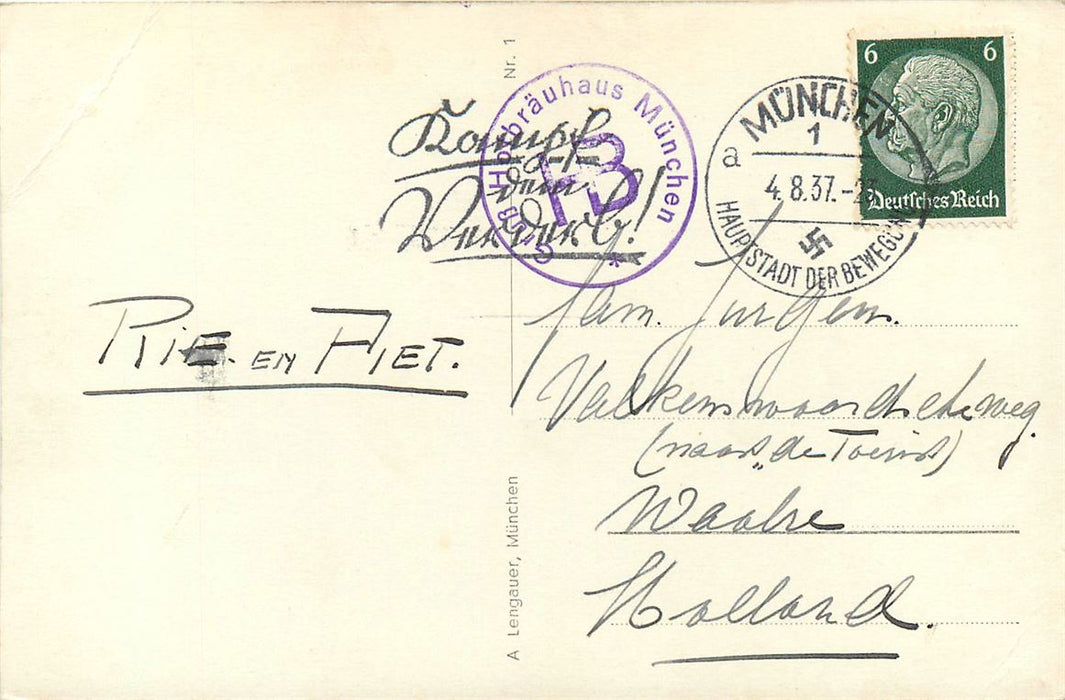 Nr. 1
6 6
Deutsches Reich
MÜNCHEN
1
a
4.8.37.-2
HAUPTSTADT DER BEWEGUNG
Gruß Hofbräuhaus München
HB
*
Kampf
dem
Verderb!
Fam. Jurgens.
Valkenswaardscheweg.
(naast "de Toerist)
Waalre
Holland.
RIE. EN PIET.
A Lengauer, München